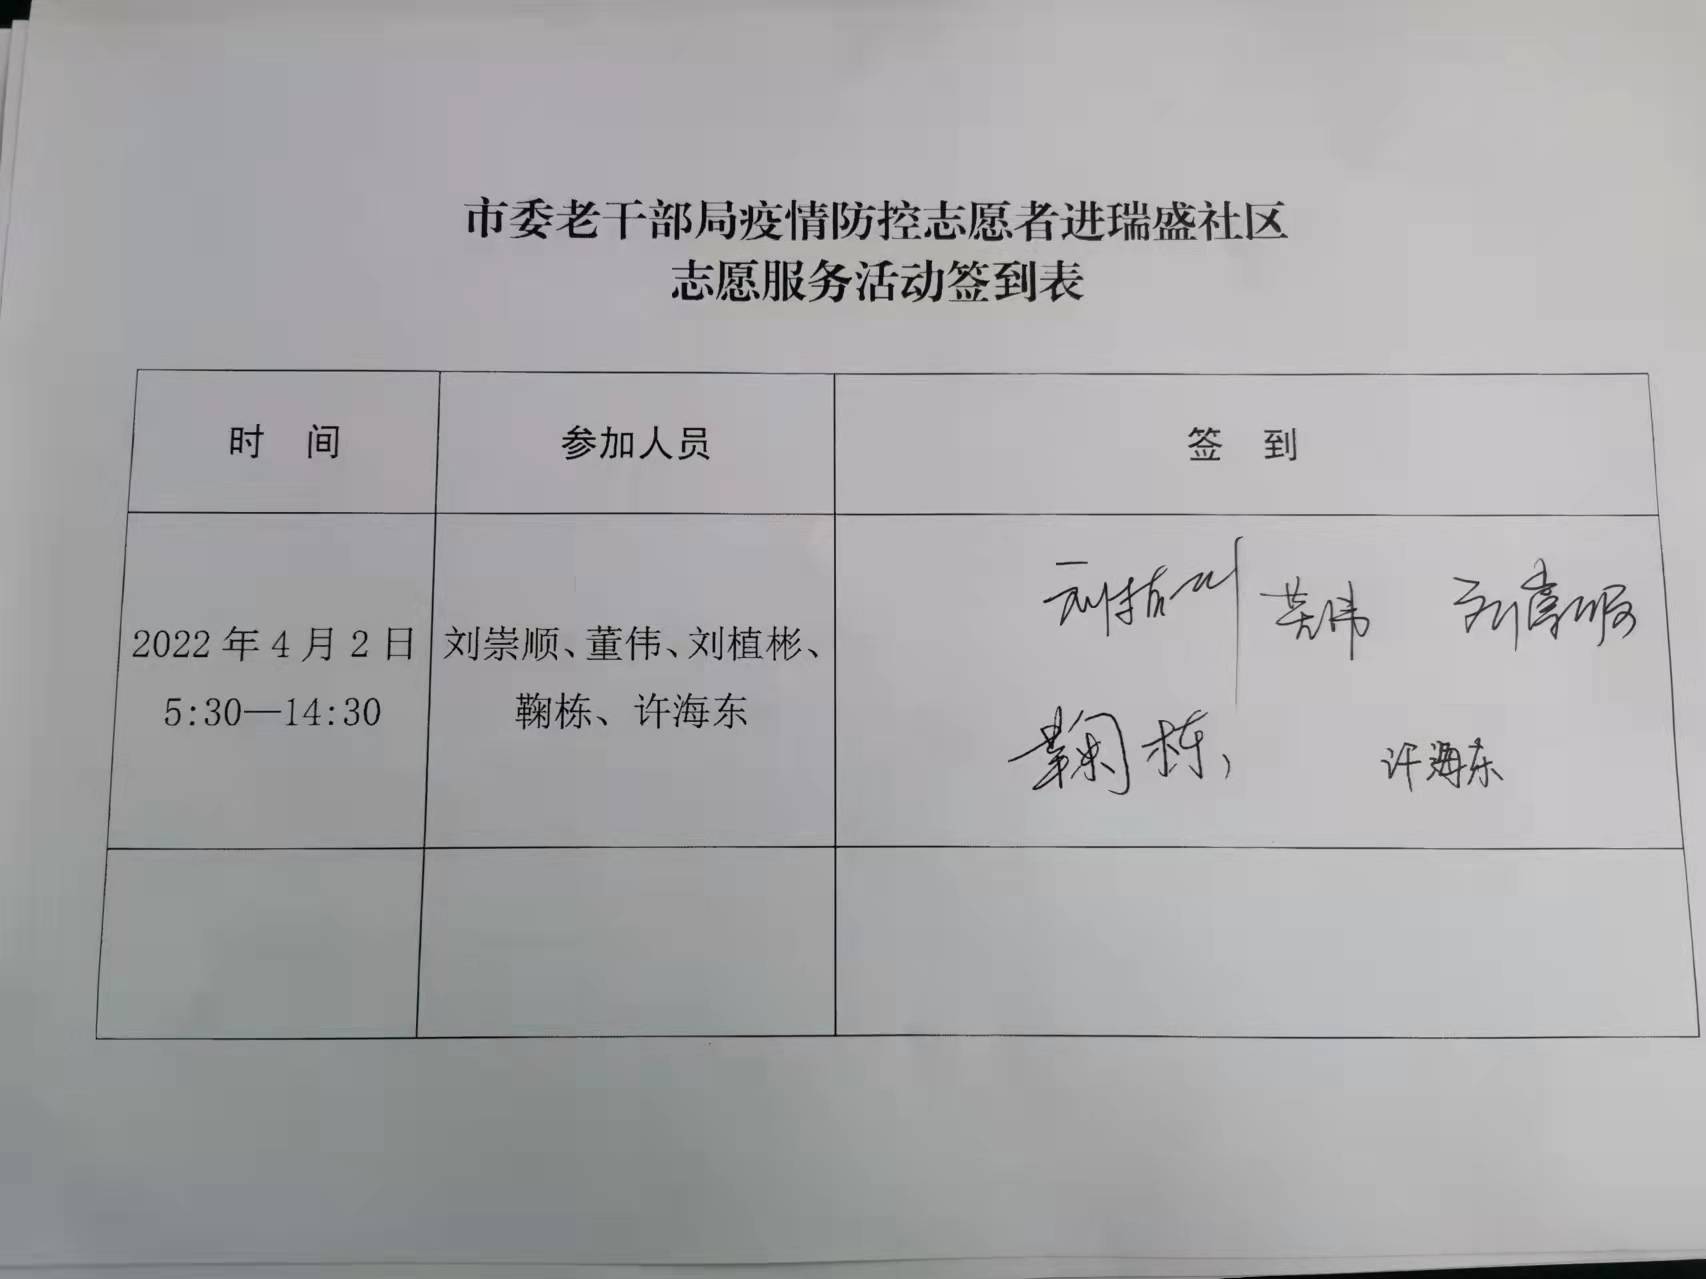 市委老干部局疫情防控志愿者进瑞盛社区
志愿服务活动签到表
时 间 参加人员 签 到
2022年4月2日
5:30—14:30
刘崇顺、董伟、刘植彬、
鞠栋、许海东
刘植彬 董伟 刘崇顺
鞠栋, 许海东